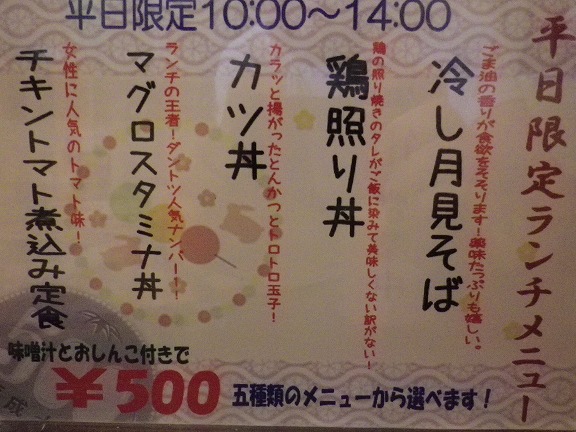 平日限定10:00～14:00
平日限定ランチメニュー
ごま油の香りが食欲をそそります！薬味たっぷりも嬉しい。
冷し月見そば
鶏の照り焼きのタレがご飯に染みて美味しくない訳がない！
鶏照り丼
カラッと揚がったとんかつとトロトロ玉子！
カツ丼
ランチの王者！ダントツ人気ナンバー１！
マグロスタミナ丼
女性に人気のトマト味！
チキントマト煮込み定食
味噌汁とおしんこ付きで
￥500
五種類のメニューから選べます！